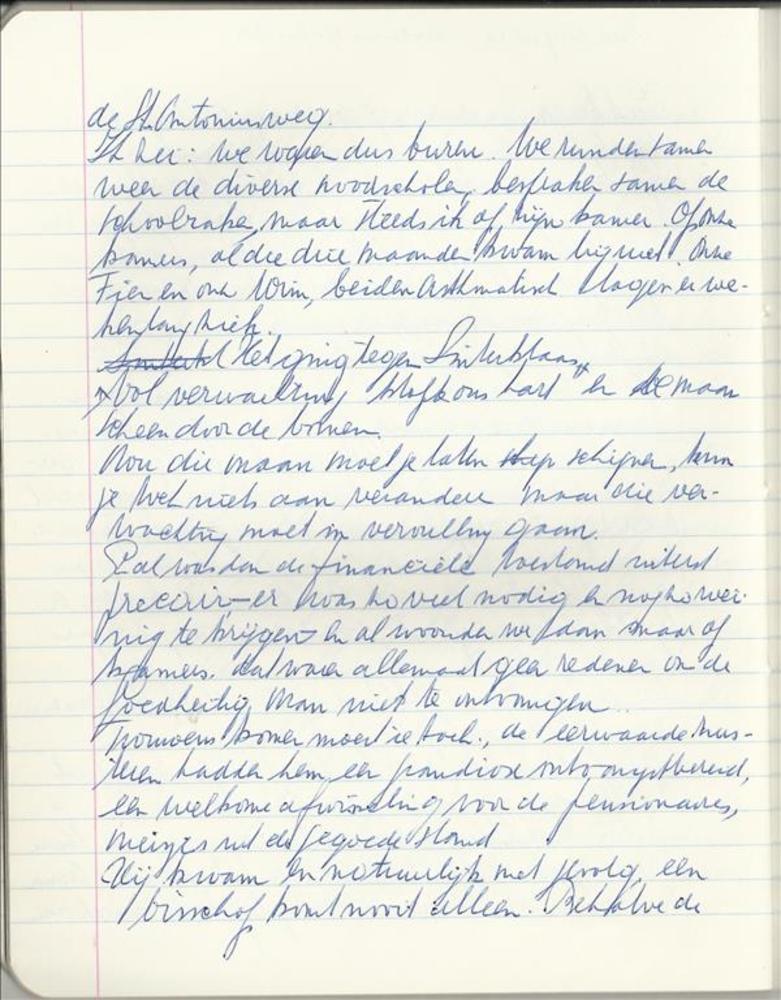 de St. Antoniusweg.
Ik zei: we waren dus buren. We runden samen
weer de diverse noodscholen, bespraken samen de
schoolzaken, maar steeds ik op mijn kamer. Op onze
kamers, al die drie maanden kwam hij niet. Onze
Fien en onze Wim, beiden Asthmatisch lagen er we-
kenlang ziek.
Het ging tegen Sinterklaas
Vol verwachting klopt ons hart en de maan
scheen door de bomen.
Nou die maan moet je laten schijnen, kun
je toch niets aan veranderen maar die ver-
wachting moet in vervulling gaan.
En al was dan de financiële toestand uiterst
precair – er was zoveel nodig en nog zo wei-
nig te krijgen – en al woonden we dan maar op
kamers, dat waren allemaal geen redenen om de
Goedheilig Man niet te ontvangen..
Trouwens komen moest ie toch, de eerwaarde zus-
teren hadden hem een grandioze ontvangst bereid,
een welkome afwisseling voor de pensionaires,
meisjes uit de gegoede stand
Hij kwam en natuurlijk met gevolg, een
bisschop komt nooit alleen. Behalve de